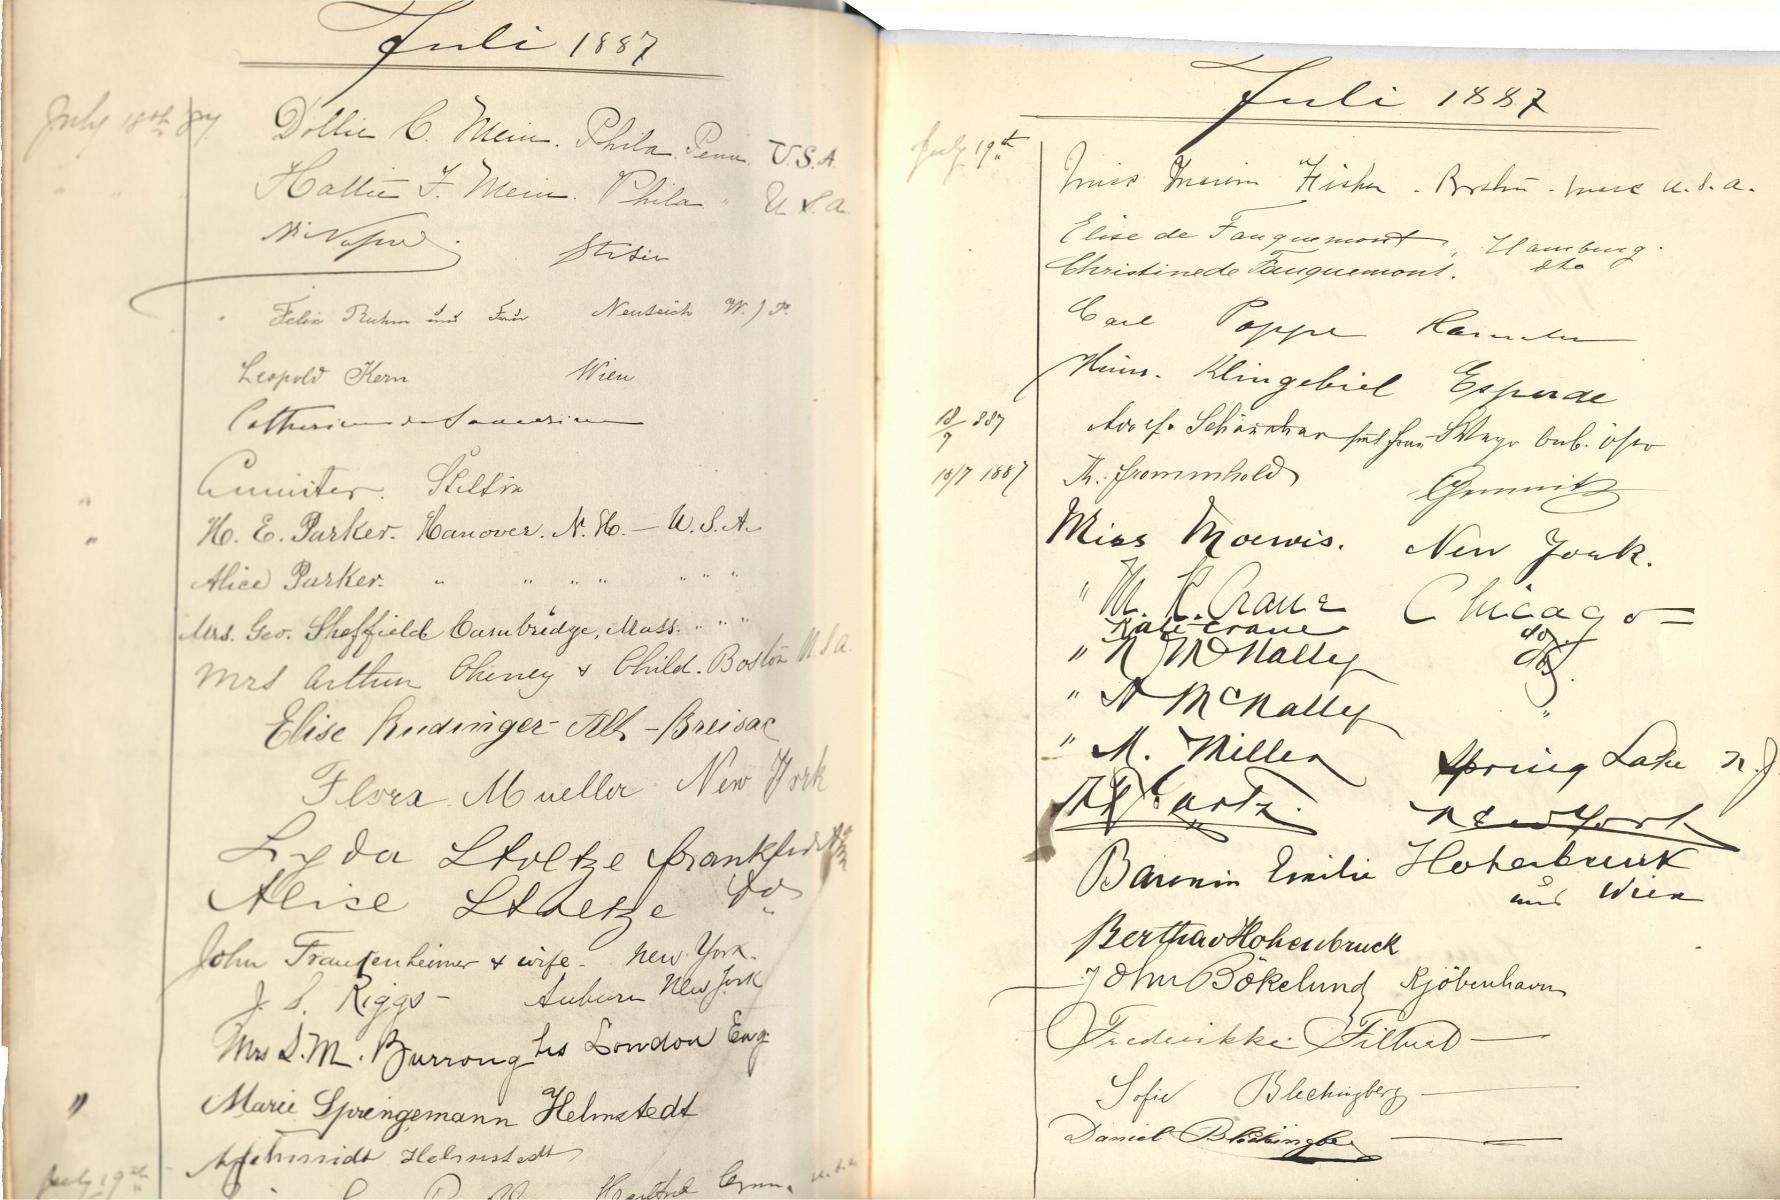 Juli 1887
July 18th 87
Dollie C. Mein. Phila. Penn. U.S.A.
" " " Hattie F. Mein. Phila " U.S.A.
Stettin
Felix Ruhm und Frau Neuteich W./P.
Leopold Kern Wien
Catherine de
Stettin
" H. E. Parker. Hanover. N. H. — U.S.A.
" Alice Parker. " " " " " " "
Mrs. Geo. Sheffield Cambridge, Mass. " " "
Mrs Arthur Cheney & Child. Boston U.S.A.
Elise Rudinger - Alt-Breisac
Flora Mueller New York
Lyda Stoltze Frankfurt
Alice Stoltze do
John Frankenheimer & wife - New York.
J. S. Riggs - Auburn New York
Mrs S. M. Burroughs London Eng
" Marie Springemann Helmstedt
A Schmidt Helmstedt
July 19th
Hartford Conn. U.S.A.
Juli 1887
July 19th
Miss Fisher. Boston. Mass U.S.A.
Elise de Fauquemont, Hamburg.
Christine de Fauquemont. dto
Carl Poppe Hameln
Heinr. Klingebiel Esperde
18/7 887 Adolf
18/7 1887 Th. Frommhold Chemnitz
Miss Moewis. New York.
" M. K. Crane Chicago
Kate Crane do
" K McNally do
" A McNally "
" M. Miller Spring Lake N.J.
New York
Baronin Emilie Hohenbruck
und Wien
Bertha v Hohenbruck
John Bökelund Kjöbenhavn
Frederikke
Sofie Blechingberg
Daniel Blechingberg